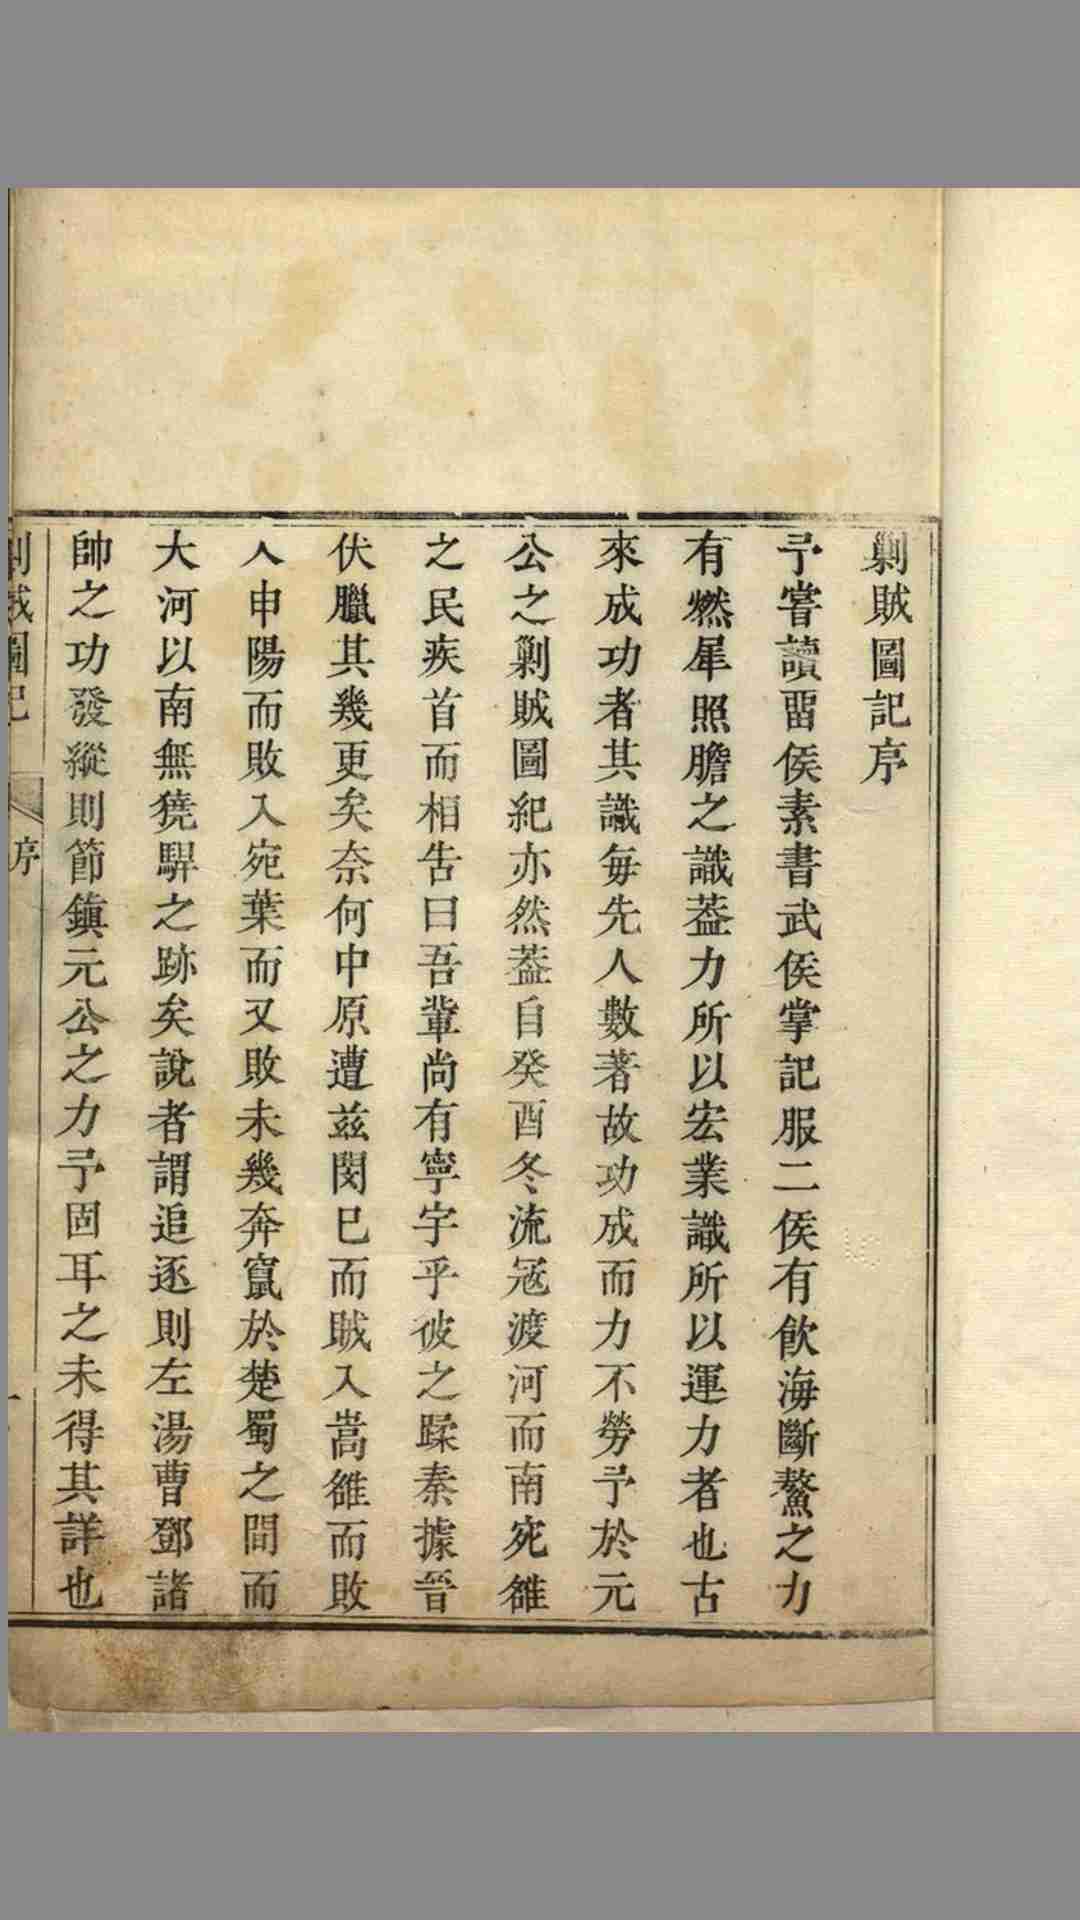 剿賊圖記序
予嘗讀畱侯素書武侯掌記服二侯有飲海斷鰲之力
有燃犀照膽之識葢力所以宏業識所以運力者也古
來成功者其識每先人數著故功成而力不勞予於元
公之剿賊圖紀亦然葢自癸酉冬流寇渡河而南宛雒
之民疾首而相告曰吾輩尚有寧宇乎彼之蹂秦據晉
伏臘其幾更矣奈何中原遭兹閔巳而賊入嵩雒而敗
入申陽而敗入宛葉而又敗未幾奔竄於楚蜀之間而
大河以南無獟騂之跡矣說者謂追逐則左湯曹鄧諸
帥之功發縱則節鎮元公之力予固耳之未得其詳也
剿賊圖記
序
一